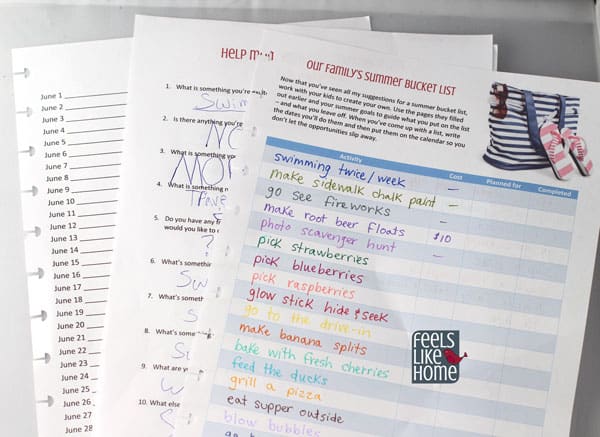 June 1
June 2
June 3
June 4
June 5
June 6
June 7
June 8
June 9
June 10
June 11
June 12
June 13
June 14
June 15
June 16
June 17
June 18
June 19
June 20
June 21
June 22
June 23
June 24
June 25
June 26
June 27
June 28
HELP
1. What is something you're
Swim
2. Is there anything you're
NO
3. What is something
MOM
4. What is something
5. Do you have any
would you like to
?
6. What's something
SW
7. What's something
S
8. What's some
9. What are y
10. What else
OUR FAMILY'S SUMMER BUCKET LIST
Now that you've seen all my suggestions for a summer bucket list,
work with your kids to create your own. Use the pages they filled
out earlier and your summer goals to guide what you put on the list
– and what you leave off. When you've come up with a list, write
the dates you'll do them and then put them on the calendar so you
don't let the opportunities slip away.
Activity Cost Planned for Completed
swimming twice/week –
make sidewalk chalk paint –
go see fireworks –
make root beer floats $10
photo scavenger hunt –
pick strawberries
pick blueberries
pick raspberries
glow stick hide & seek
go to the drive-in
make banana splits
bake with fresh cherries
feed the ducks
grill a pizza
eat supper outside
blow bubbles
FEELS
LIKE
HOME